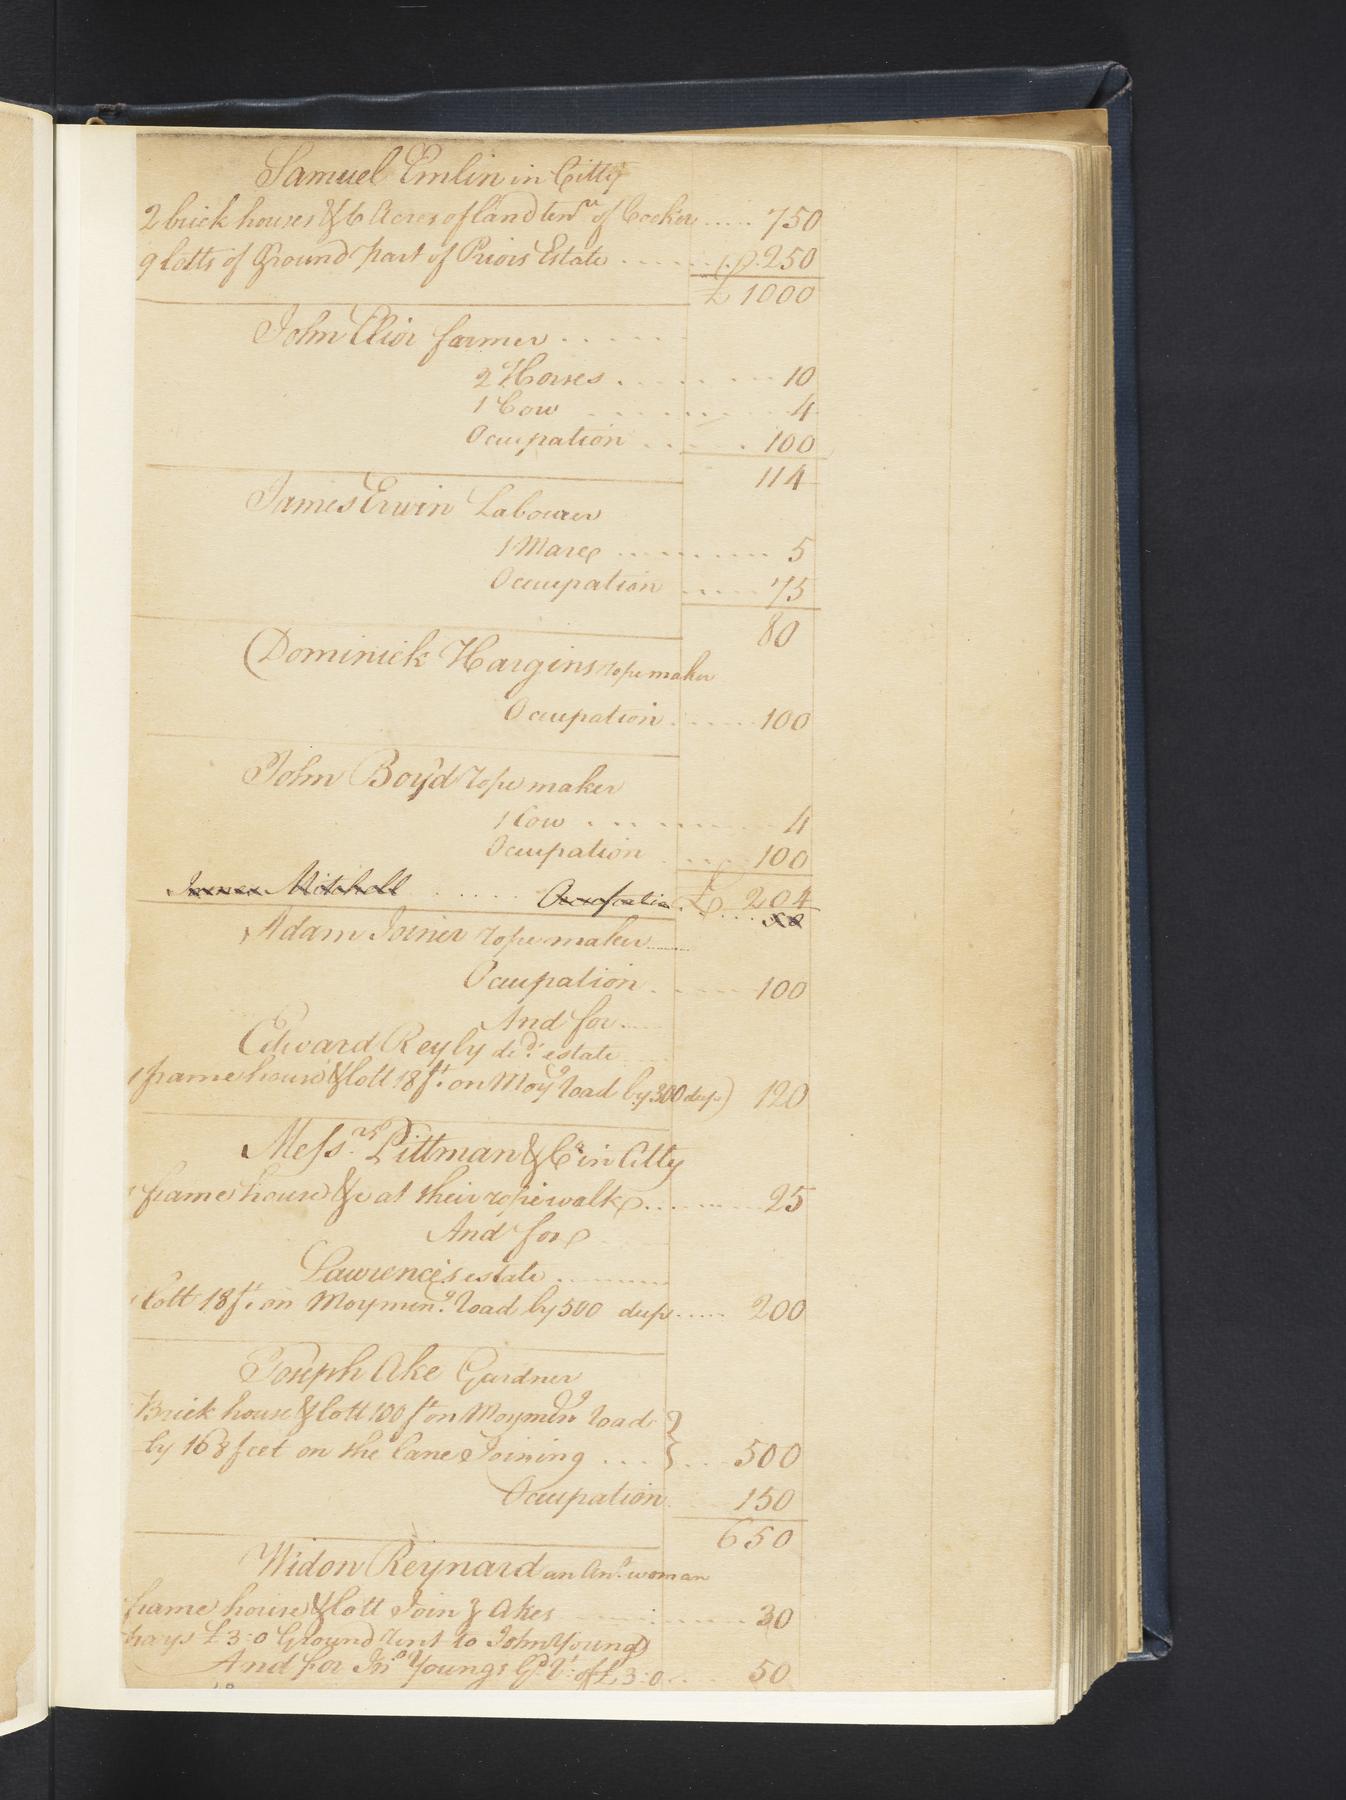 Samuel Emlin in Citty
2 brick houses & 6 Acres of land ten.re of Cocker ..... 750
9 lotts of Ground part of Priors Estate ........ 250
£ 1000
John Elior farmer ......
2 Horses ........ 10
1 Cow ........ 4
Ocupation ..... 100
114
James Erwin Labourer
1 Mare ......... 5
Occupation ..... 75
80
Dominick Hargins rope maker
Ocupation ..... 100
John Boyd rope maker
1 Cow ........ 4
Ocupation ..... 100
£ 204
James Mitchell ...... Occupation ..... 50
Adam Joiner rope maker
Ocupation ..... 100
And for
Edward Reyly de.d estate
1 frame house & lott 18 f.t on Moy.g Road by 300 deep) 120
Mess.rs Pittman & Co in Citty
1 frame house &c at their ropewalk ....... 25
And for
Lawrence's estate
1 Lott 18 f.t on Moymen.g Road by 500 deep ..... 200
Joseph Ake Gardner
Brick house & lott 100 f.t on Moymen.g Road }
by 168 feet on the lane Joining ... } ... 500
Occupation 150
650
Widon Reynard an An.t woman
frame house & lott Join.g Akes ....... 30
pays £3:0 Ground Rent to John Young
And for Jn.o Youngs G.d R.t of £3:0 ... 50